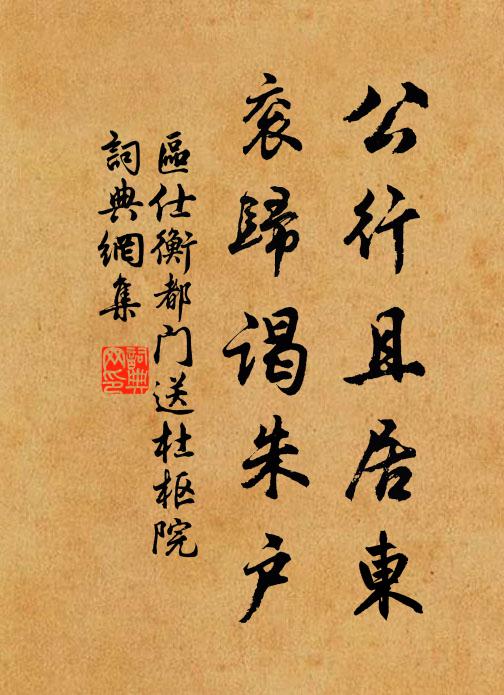 公行且居東
衮歸谒朱户
區仕衡都门送杜枢院
詞典網集
詞典网印